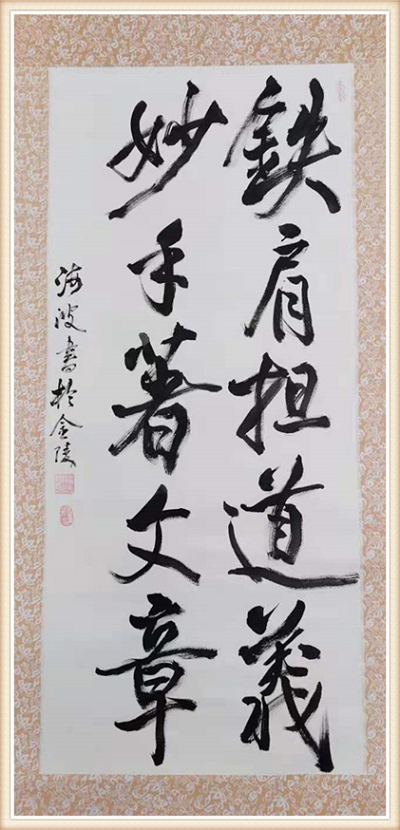 鉄肩担道義
妙手著文章
海波書於金陵